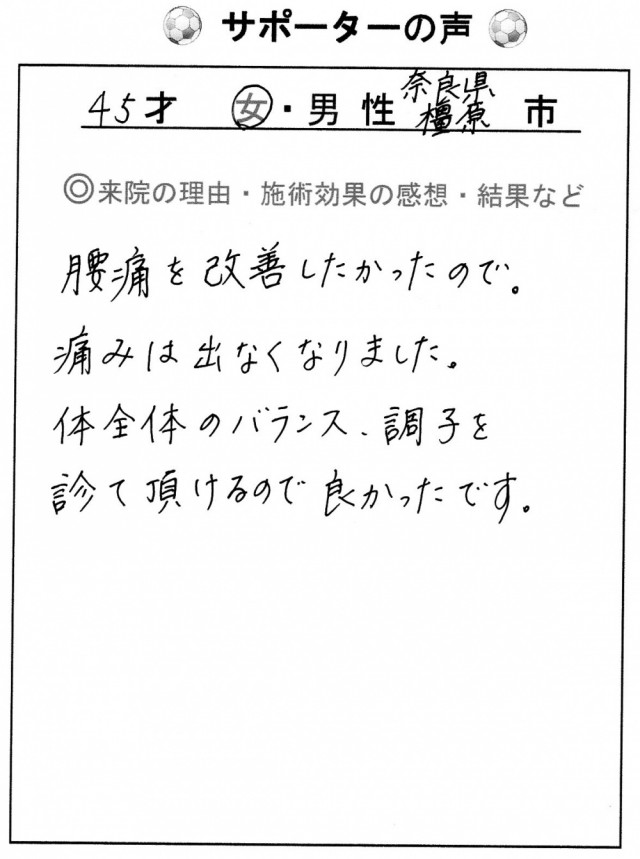 サポーターの声
45才 女・男性 奈良県橿原市
◎来院の理由・施術効果の感想・結果など
腰痛を改善したかったので。
痛みは出なくなりました。
体全体のバランス、調子を
診て頂けるので良かったです。